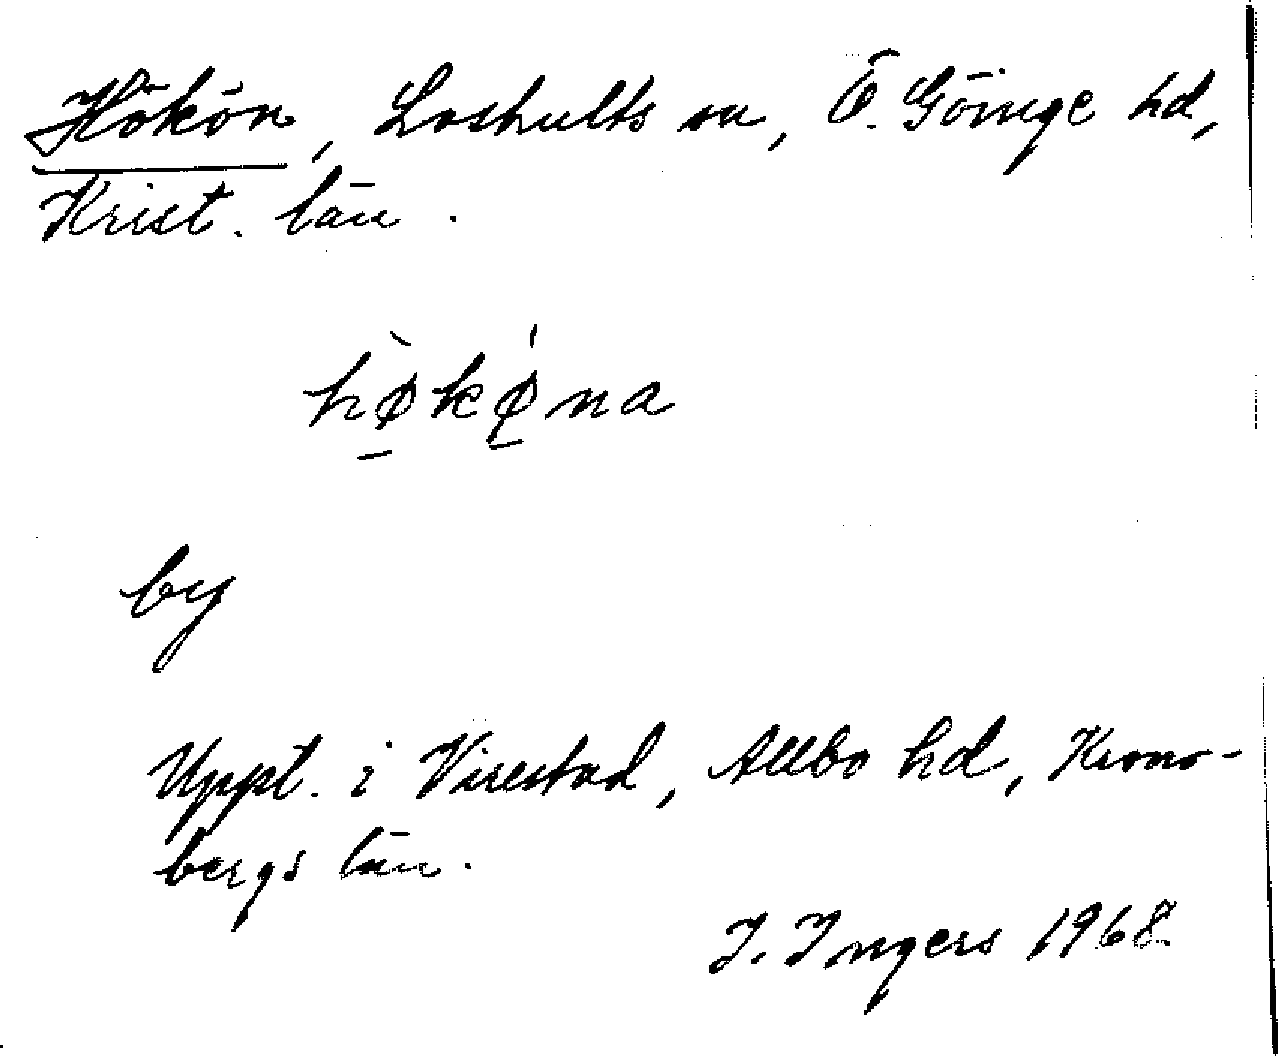 Hökön, Loshults sn, Ö. Göinge hd,
Krist. län.
hø̀kǿna
by
Uppt. i Virestad, Allbo hd, Krono-
bergs län.
I. Ingers 1968.